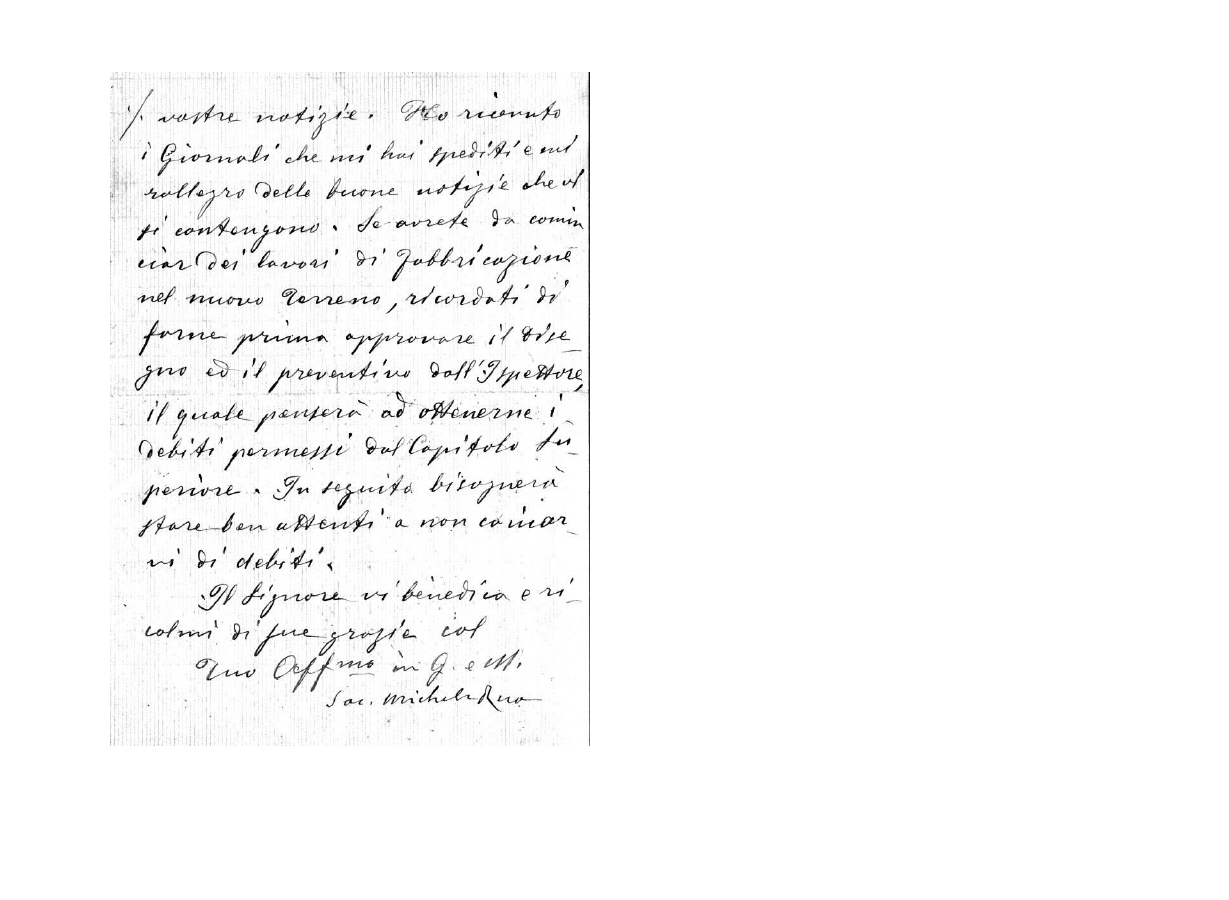 ./. vostre notizie. Ho ricevuto
i Giornali che mi hai spediti e mi
rallegro delle buone notizie che vi
si contengono. Se avrete da comin
ciar dei lavori di fabbricazione
nel nuovo Terreno, ricordati di
farne prima approvare il Dise_
gno ed il preventivo dall'Ispettore,
il quale penserà ad ottenerne i
debiti permessi dal Capitolo Su_
periore. In seguito bisognerà
stare ben attenti a non caricar_
vi di debiti.
Il Signore vi benedica e ri_
colmi di sue grazie col
Tuo Aff.mo in G. e M.
Sac. Michele Rua